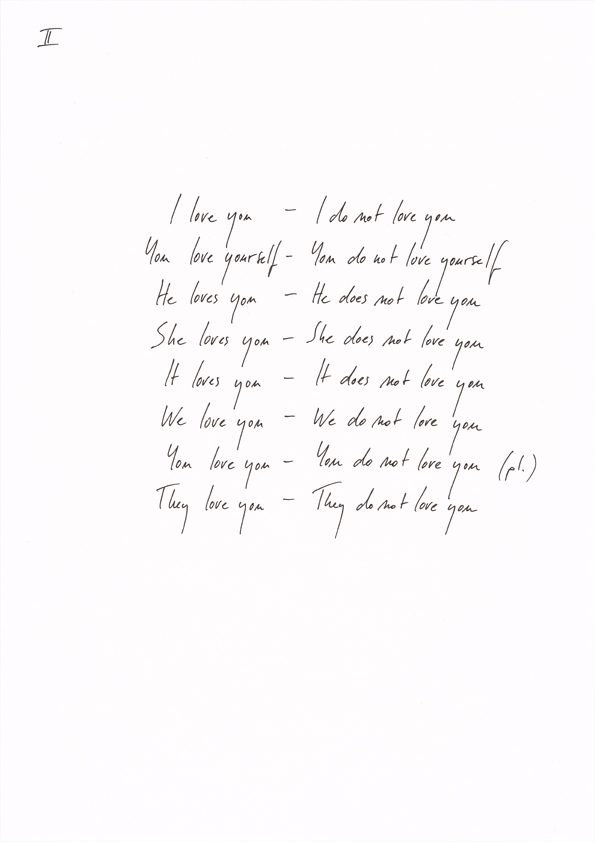 II
I love you – I do not love you
You love yourself – You do not love yourself
He loves you – He does not love you
She loves you – She does not love you
It loves you – It does not love you
We love you – We do not love you
You love you – You do not love you (pl.)
They love you – They do not love you